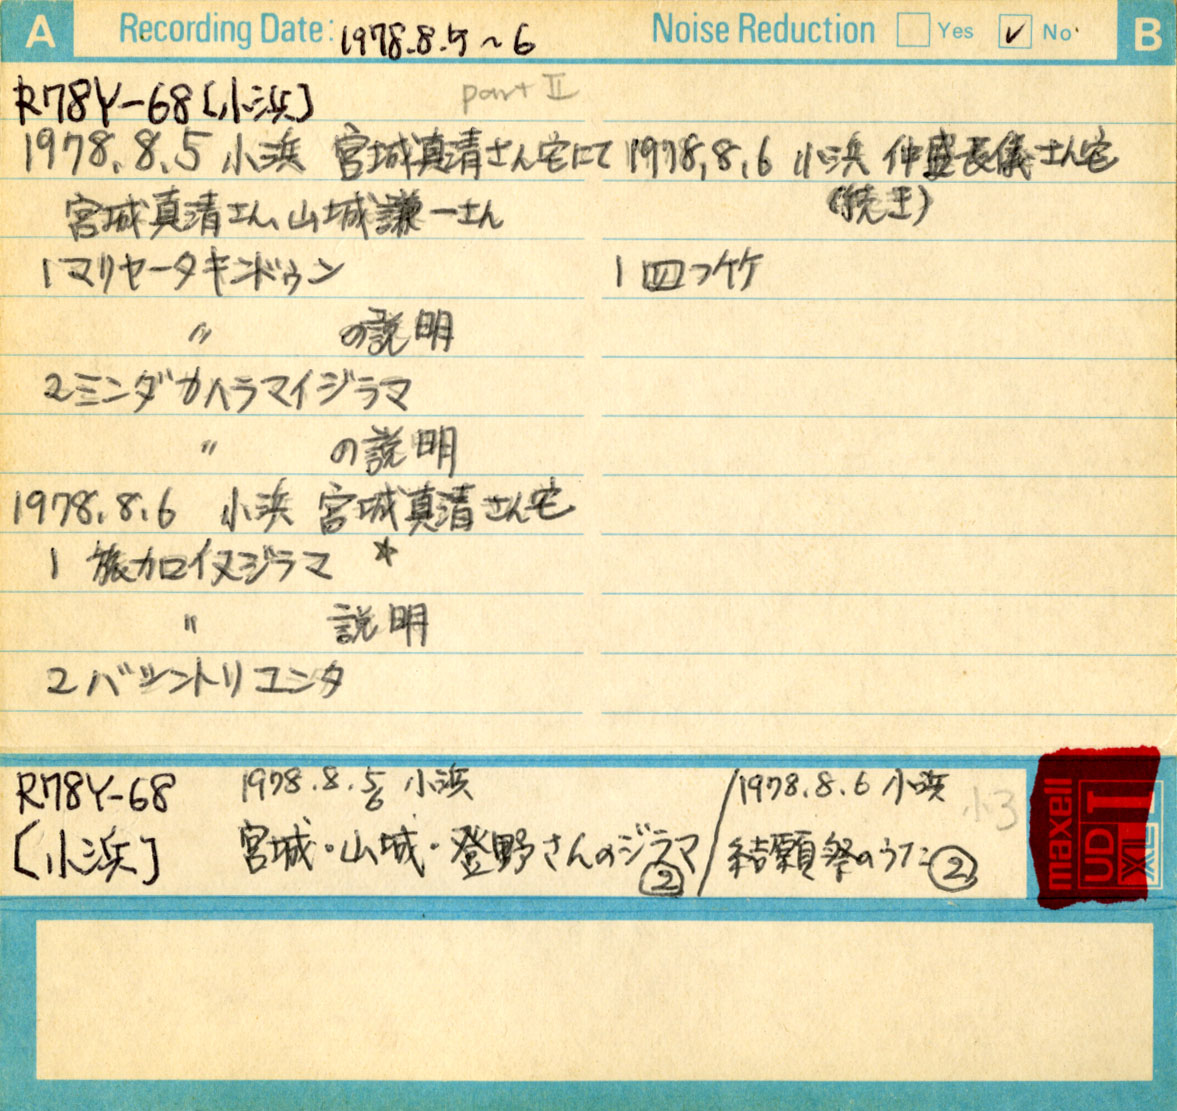 A Recording Date: 1978.8.5〜6 Noise Reduction Yes ✓ No B
R78Y-68〔小浜〕 part II
1978.8.5 小浜 宮城真清さん宅にて
宮城真清さん、山城謙一さん
1 マリヤータキンドゥン
〃 の説明
2 ミンダカハラマイジラマ
〃 の説明
1978.8.6 小浜 宮城真清さん宅
1 旅カロイヌジラマ ☆
〃 説明
2 バシントリユンタ
1978.8.6 小浜 仲盛長儀さん宅
(続き)
1 四つ竹
R78Y-68
〔小浜〕
1978.8.5 小浜
6
宮城・山城・登野さんのジラマ
②
/1978.8.6 小浜
結願祭のうた②
小3
maxell
UD I
XL